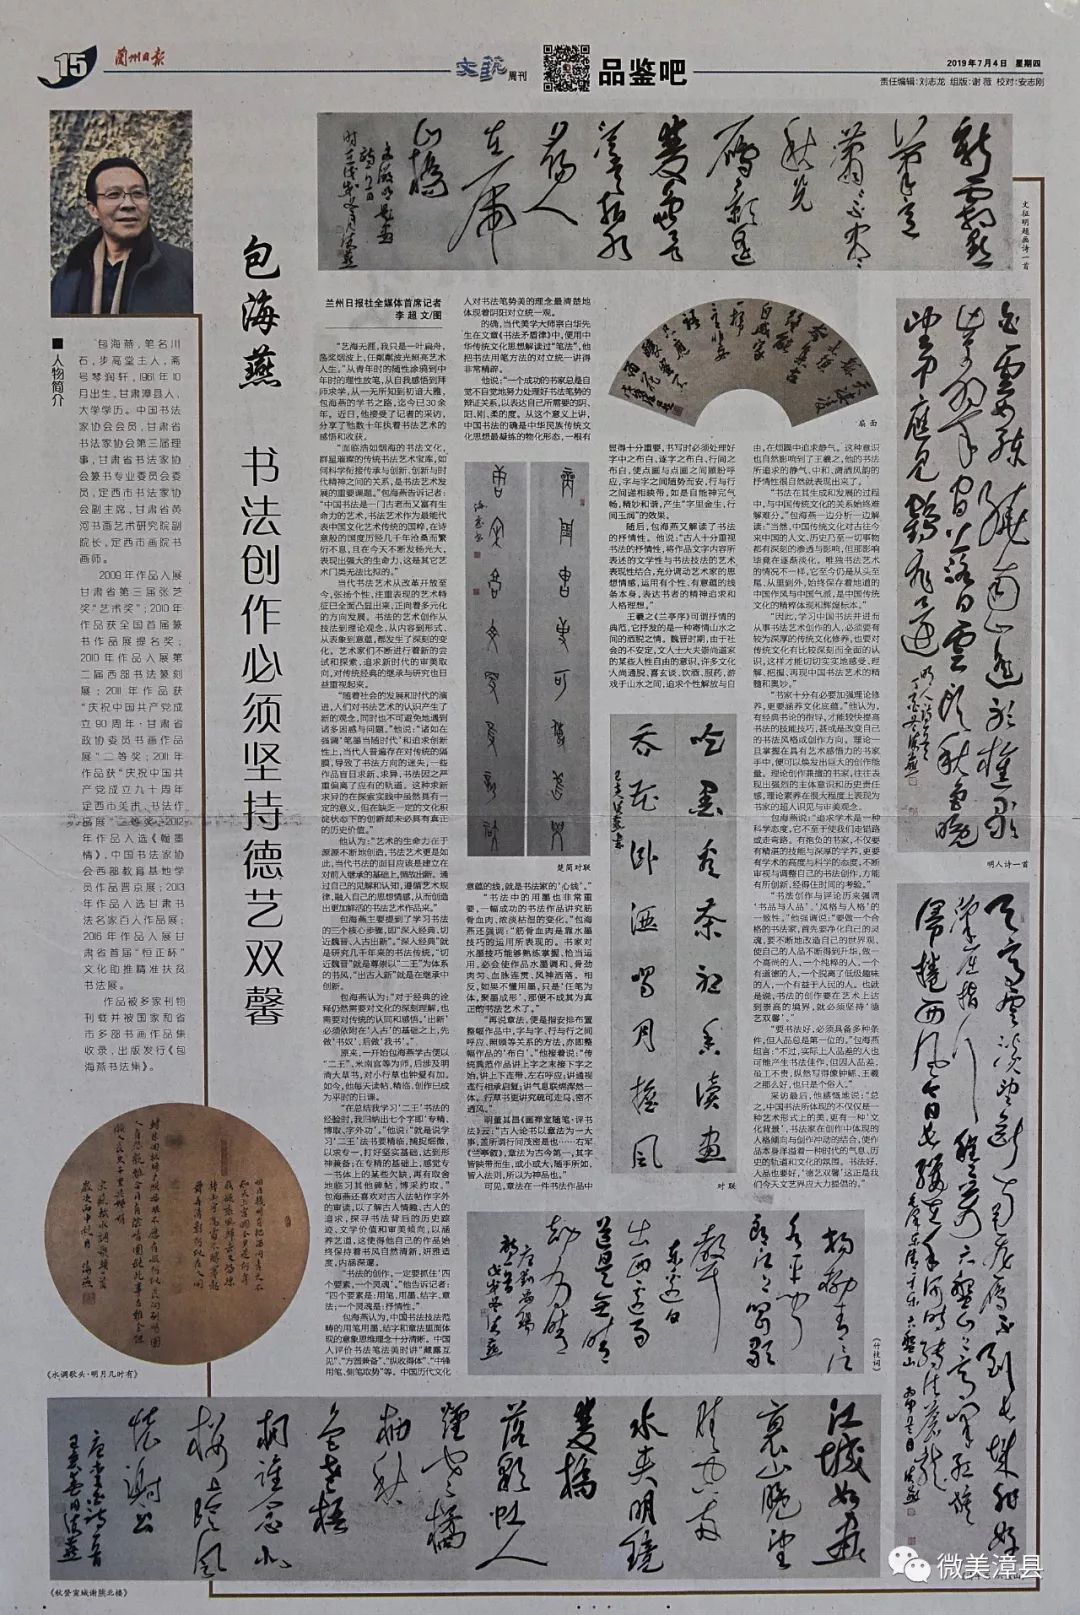 15
兰州日报
文艺周刊
品鉴吧
2019年7月4日 星期四
责任编辑:刘志龙 组版:谢薇 校对:安志刚
包海燕 书法创作必须坚持德艺双馨
■人物简介
包海燕,笔名川
石,步高堂主人,斋
号琴润轩,1961年10
月出生,甘肃漳县人,
大学学历。中国书法
家协会会员,甘肃省
书法家协会第三届理
事,甘肃省书法家协
会篆书专业委员会委
员,定西市书法家协
会副主席,甘肃省黄
河书画艺术研究院副
院长,定西市画院书
画师。
2009年作品入展
甘肃省第三届张芝
奖“艺术奖”;2010年
作品获全国首届篆
书作品展提名奖;
2010年作品入展第
二届西部书法篆刻
展;2011年作品获
“庆祝中国共产党成
立90周年·甘肃省
政协委员书画作品
展”二等奖;2011年
作品获“庆祝中国共
产党成立九十周年
定西市美术、书法作
品展”二等奖;2012
年作品入选《翰墨
情》,中国书法家协
会西部教育基地学
员作品晋京展;2013
年作品入选甘肃书
法名家百人作品展;
2016年作品入展甘
肃省首届“恒正杯”
文化助推精准扶贫
书法展。
作品被多家刊物
刊载并被国家和省
市多部书画作品集
收录,出版发行《包
海燕书法集》。
兰州日报社全媒体首席记者
李超 文/图
“艺海无涯,我只是一叶扁舟,
荡桨烟波上,任粼粼波光照亮艺术
人生。”从青年时的随性涂鸦到中
年时的理性放笔,从自我感悟到拜
师求学,从一无所知到初谙大雅,
包海燕的学书之路,迄今已30余
年。近日,他接受了记者的采访,
分享了他数十年执着书法艺术的
感悟和收获。
“面临浩如烟海的书法文化,
群星璀璨的传统书法艺术宝库,如
何科学衔接传承与创新、创新与时
代精神之间的关系,是书法艺术发
展的重要课题。”包海燕告诉记者:
“中国书法是一门古老而又富有生
命力的艺术,书法艺术作为最能代
表中国文化艺术传统的国粹,在诗
意般的国度历经几千年沧桑而繁
衍不息,且在今天不断发扬光大,
表现出强大的生命力,这是其它艺
术门类无法比拟的。”
当代书法艺术从改革开放至
今,张扬个性,注重表现的艺术特
征已全面凸显出来,正向着多元化
的方向发展。书法的艺术创作从
技法到理论观念,从内容到形式,
从表象到意蕴,都发生了深刻的变
化。艺术家们不断进行着新的尝
试和探索,追求新时代的审美取
向,对传统经典的继承与研究也日
益重视起来。
“随着社会的发展和时代的演
进,人们对书法艺术的认识产生了
新的观念,同时也不可避免地遇到
诸多困惑与问题。”他说:“诸如在
强调‘笔墨当随时代’和追求创新
性上,当代人普遍存在对传统的隔
膜,导致了书法方向的迷失,一些
作品盲目求新、求异,书法因之严
重偏离了应有的轨道。这种求新
求异的在探索实践中虽然具有一
定的意义,但在缺乏一定的文化积
淀状态下的创新却未必具有真正
的历史价值。”
他认为:“艺术的生命力在于
源源不断地创造,书法艺术更是如
此,当代书法的面目应该是建立在
对前人继承的基础上,循故出新。通
过自己的见解和认知,遵循艺术规
律,融入自己的思想情感,从而创造
出更加鲜活的书法艺术作品来。”
包海燕主要提到了学习书法
的三个核心步骤,即“深入经典、切
近魏晋、入古出新”。“深入经典”就
是研究几千年来的书法传统,“切
近魏晋”就是尊崇以“二王”为体系
的书风,“出古入新”就是在继承中
创新。
包海燕认为:“对于经典的诠
释仍然需要对文化的深刻理解,也
需要对传统的认同和感悟。‘出新’
必须依附在‘入古’的基础之上,先
做‘书奴’,后做‘我书’。”
原来,一开始包海燕学古便以
“二王”、米南宫等为师,后涉及明
清大草书,对小行草也钟爱有加。
如今,他每天读帖、精临、创作已成
为平时的日课。
“在总结我学习‘二王’书法的
经验时,我归纳出七个字即‘专精、
博取、字外功’。”他说:“就是说学
习‘二王’法书要精临,捕捉细微,
以求专一,打好坚实基础,达到形
神兼备;在专精的基础上,感觉专
一书体上的某些欠缺,再有取舍
地临习其他碑帖,博采约取。”
包海燕还喜欢对古人法帖作字外
的审读,以了解古人情趣、古人的
追求,探寻书法背后的历史踪
迹、文学价值和审美倾向,以涵
养艺道,这使得他自己的作品始
终保持着书风自然清新,妍雅适
度,内涵深邃。
“书法的创作,一定要抓住‘四
个要素,一个灵魂’。”他告诉记者:
“四个要素是:用笔、用墨、结字、章
法;一个灵魂是:抒情性。”
包海燕认为,中国书法技法范
畴的用笔用墨、结字和章法里面体
现的意象思维理念十分清晰。中国
人评价书法笔法美时讲“藏露互
见”、“方圆兼备”、“纵收得体”、“中锋
用笔、侧笔取势”等。中国历代文化
人对书法笔势美的理念最清楚地
体现着阴阳对立统一观。
的确,当代美学大师宗白华先
生在文章《书法矛盾律》中,便用中
华传统文化思想解读过“笔法”,他
把书法用笔方法的对立统一讲得
非常精辟。
他说:“一个成功的书家总是自
觉不自觉地努力处理好书法笔势的
辩证关系,以表达自己所需要的阴、
阳、刚、柔的度。从这个意义上讲,
中国书法的确是中华民族传统文
化思想最凝练的物化形态,一根有
意蕴的线,就是书法家的‘心线’。”
“书法中的用墨也非常重
要,一幅成功的书法作品讲究筋
骨血肉、浓淡枯湿的变化。”包海
燕还强调:“筋骨血肉是靠水墨
技巧的运用所表现的。书家对
水墨技巧能够熟练掌握、恰当运
用,必会使作品水墨调和、骨劲
肉匀、血脉连贯、风神洒落。相
反,如果不懂用墨,只是‘任笔为
体,聚墨成形’,那便不成其为真
正的书法艺术了。”
“再说章法,便是指安排布置
整幅作品中,字与字、行与行之间
呼应、照顾等关系的方法,亦即整
幅作品的‘布白’。”他接着说:“传
统典范作品讲上字之末接下字之
始,讲上下连带、左右呼应;讲通视
连行相承启复;讲气息联绵浑然一
体。行草书更讲究疏可走马、密不
透风。”
明董其昌《画禅室随笔·评书
法》云:“古人论书以章法为一大
事,盖所谓行间茂密是也……右军
《兰亭叙》,章法为古今第一,其字
皆映带而生,或小或大,随手所如,
皆入法则,所以为神品也。”
可见,章法在一件书法作品中
显得十分重要,书写时必须处理好
字中之布白、逐字之布白、行间之
布白,使点画与点画之间顾盼呼
应,字与字之间随势而安,行与行
之间递相映带,如是自能神完气
畅、精妙和谐,产生“字里金生,行
间玉润”的效果。
随后,包海燕又解读了书法
的抒情性。他说:“古人十分重视
书法的抒情性,将作品文字内容所
表述的文学性与书法技法的艺术
表现性结合,充分调动艺术家的思
想情感,运用有个性、有意蕴的线
条本身,表达书者的精神追求和
人格理想。”
王羲之《兰亭序》可谓抒情的
典范,它抒发的是一种寄情山水之
间的洒脱之情。魏晋时期,由于社
会的不安定,文人士大夫崇尚道家
的某些人性自由的意识,许多文化
人尚通脱、喜玄谈、饮酒、服药,游
戏于山水之间,追求个性解放与自
由,在烦躁中追求静气。这种意识
也自然影响到了王羲之,他的书法
所追求的静气、中和、潇洒风韵的
抒情性很自然就表现出来了。”
“书法在其生成和发展的过程
中,与中国传统文化的关系始终难
解难分。”包海燕一边分析一边解
读:“当然,中国传统文化对古往今
来中国的人文、历史乃至一切事物
都有深刻的渗透与影响,但那影响
毕竟在逐渐淡化。唯独书法艺术
的情况不一样,它至今仍是从头至
尾、从里到外,始终保存着地道的
中国作风与中国气派,是中国传统
文化的精粹体现和辉煌标本。”
“因此,学习中国书法并进而
从事书法艺术创作的人,必须要有
较为深厚的传统文化修养,也要对
传统文化有比较深刻而全面的认
识,这样才能切切实实地感受、理
解、把握、再现中国书法艺术的精
髓和奥妙。”
“书家十分有必要加强理论修
养,更要涵养文化底蕴。”他认为,
有经典书论的指导,才能较快提高
书法的技能技巧,甚或是改变自己
的书法风格或创作方向。理论一
旦掌握在具有艺术感悟力的书家
手中,便可以焕发出巨大的创作能
量。理论创作兼擅的书家,往往表
现出强烈的主体意识和历史责任
感,理论素养在很大程度上表现为
书家的超人识见与审美观念。
包海燕说:“追求学术是一种
科学态度,它不至于使我们走错路
或走弯路。有抱负的书家,不仅要
有精湛的技能与深厚的学养,更要
有学术的高度与科学的态度,不断
审视与调整自己的书法创作,方能
有所创新,经得住时间的考验。”
“书法创作与评论历来强调
‘书品与人品’、‘风格与人格’的
一致性。”他强调说:“要做一个合
格的书法家,首先要净化自己的灵
魂,要不断地改造自己的世界观,
使自己的人品不断得到升华,做一
个高尚的人,一个纯粹的人,一个
有道德的人,一个脱离了低级趣味
的人,一个有益于人民的人。也就
是说,书法的创作要在艺术上达
到崇高的境界,就必须坚持‘德
艺双馨’。”
“要书法好,必须具备多种条
件,但人品总是第一位的。”包海燕
坦言:“不过,实际上人品差的人也
可能产生书法佳作,但因人品差,
虽工不贵,纵然写得像钟繇、王羲
之那么好,也只是个俗人。”
采访最后,他感慨地说:“总
之,中国书法所体现的不仅仅是一
种艺术形式上的美,更有一种‘文
化背景’,书法家在创作中体现的
人格倾向与创作冲动的结合,使作
品本身洋溢着一种时代的气息、历
史的轨迹和文化的氛围。书法好,
人品也要好,‘德艺双馨’这正是我
们今天文艺界应大力提倡的。”
文征明题画诗一首
扇面
明人诗一首
楚简对联
吟墨香茶初春读画
对联
杨柳青青江
水平闻
郎江上唱歌
声
东边日
出西边雨
道是无晴
却有晴
《竹枝词》
《水调歌头·明月几时有》
江城如画
里山晓望
晴空两
水夹明镜
双桥
落彩虹人
烟寒橘
柚秋
色老梧
桐谁念北
楼上临风
怀谢公
《秋登宣城谢朓北楼》
微美漳县